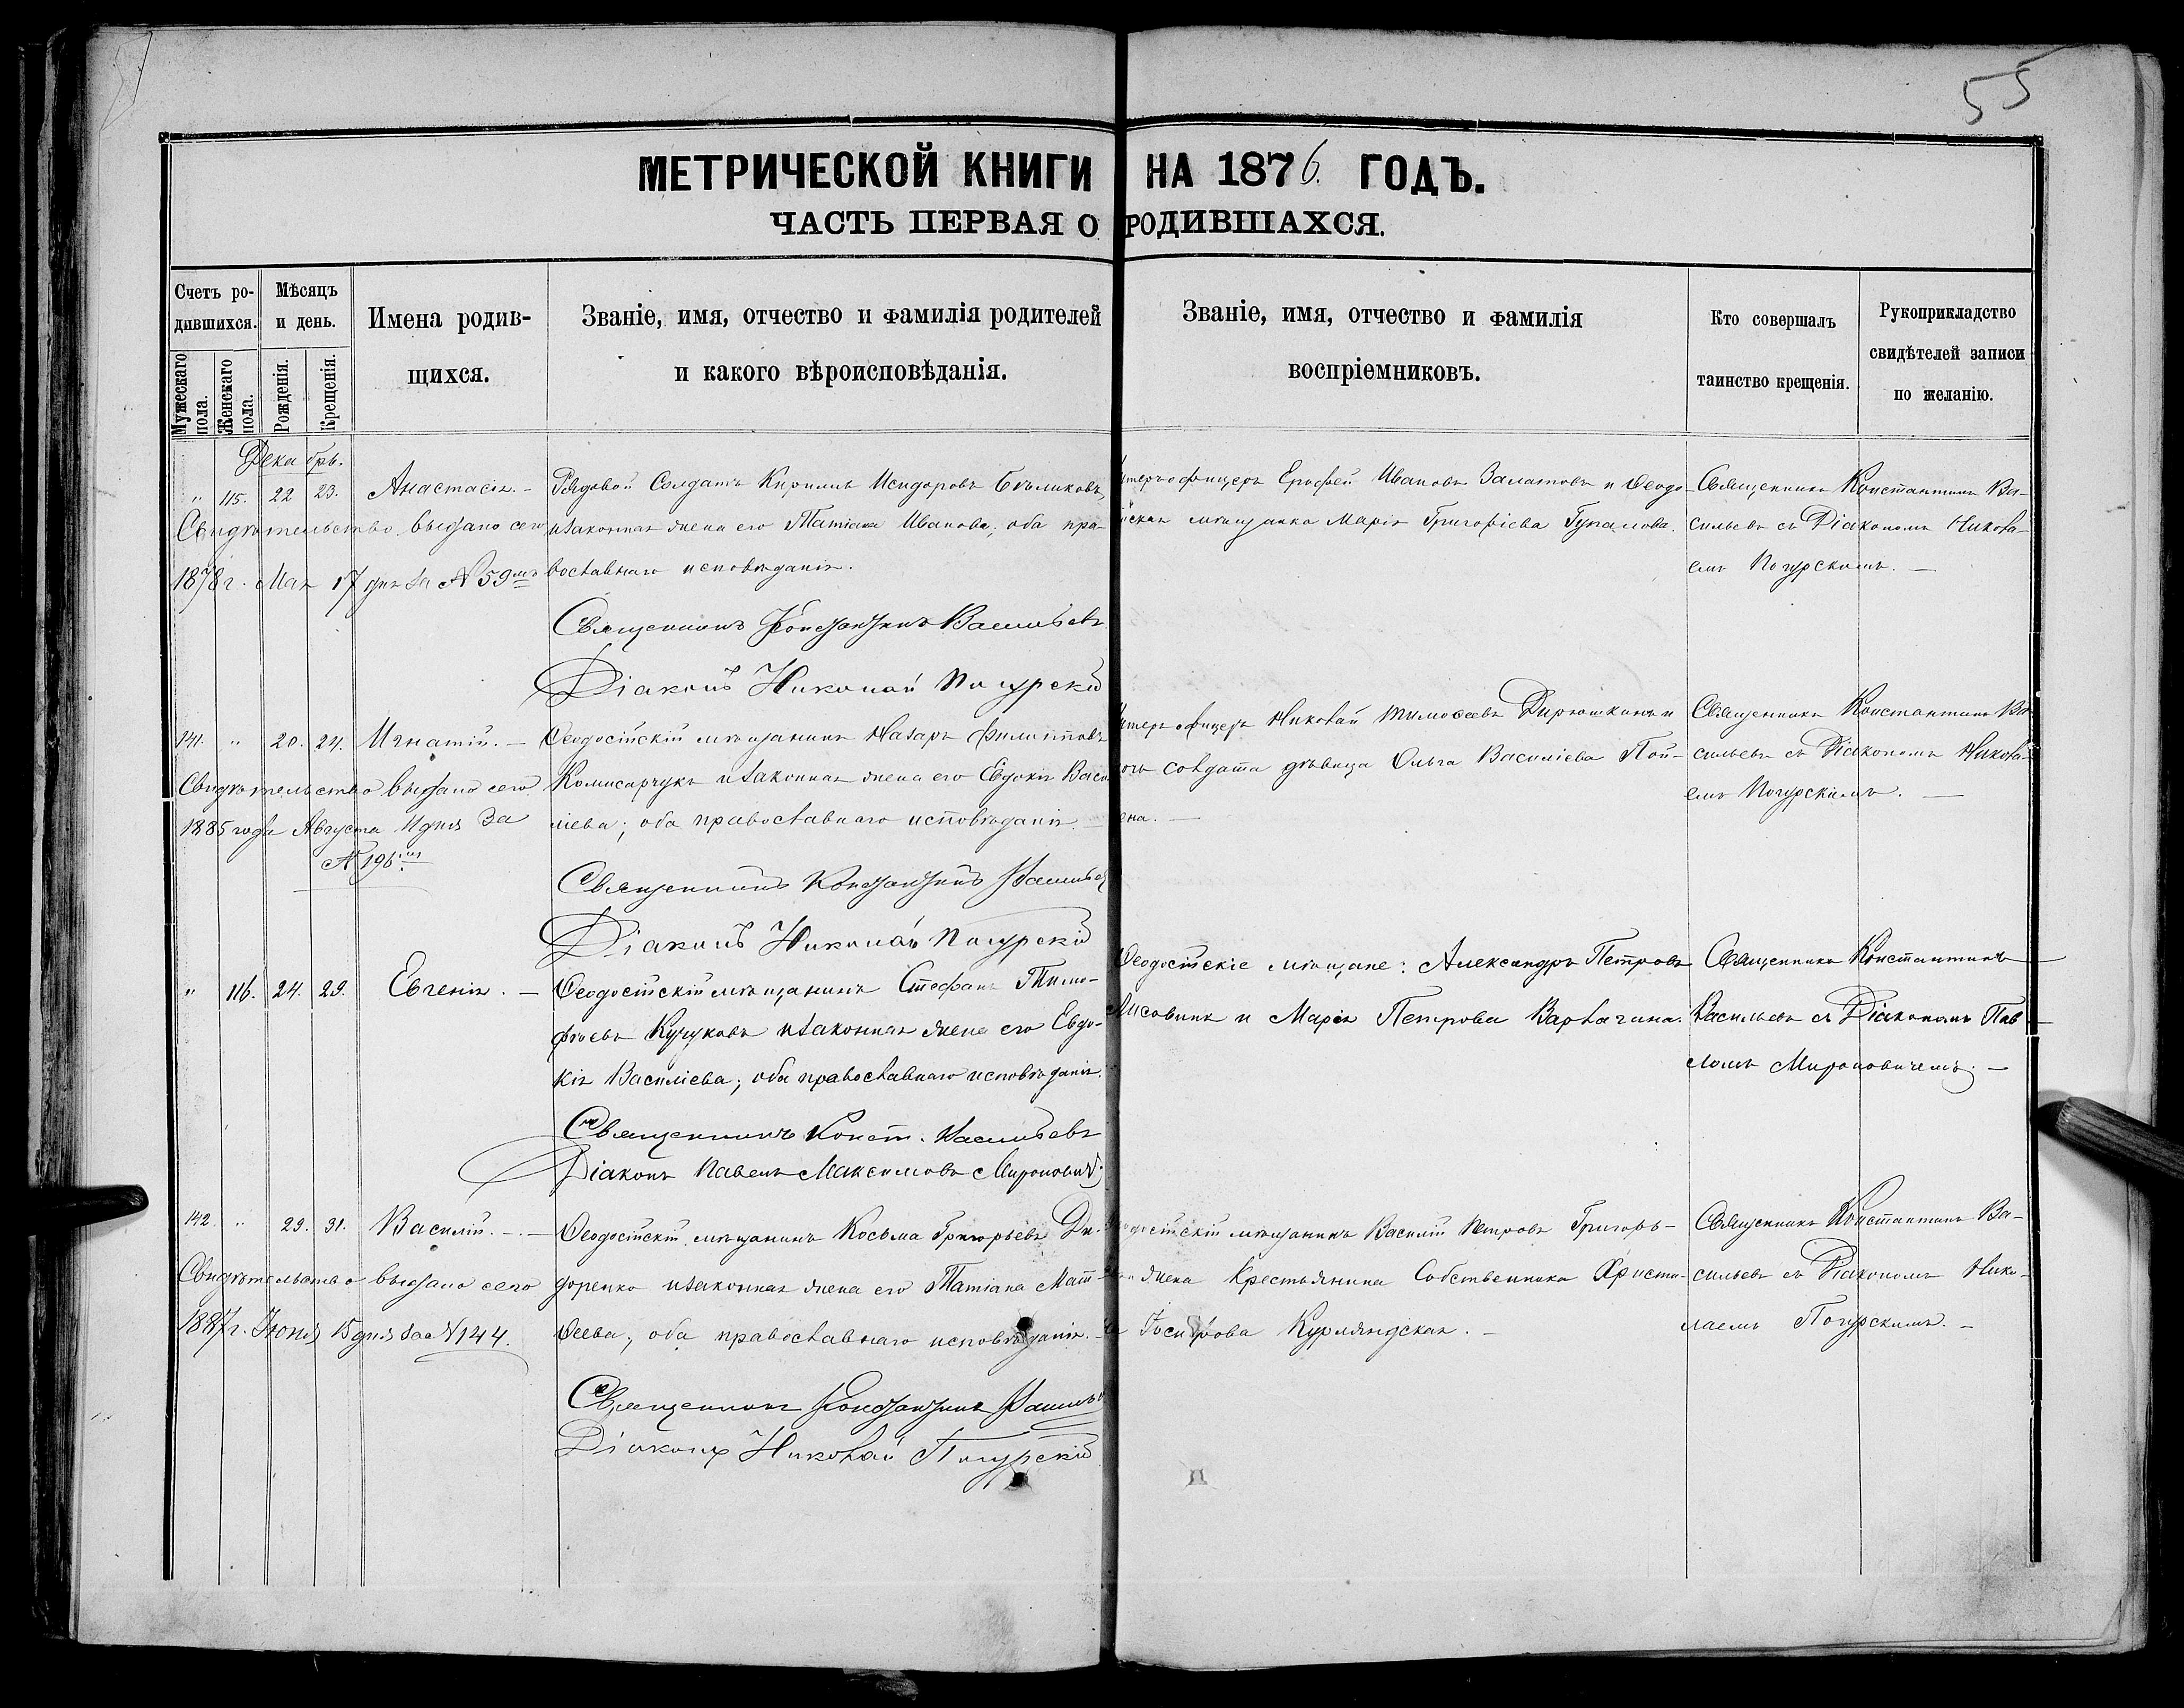 55
МЕТРИЧЕСКОЙ КНИГИ НА 1876. ГОДЪ.
ЧАСТЬ ПЕРВАЯ О РОДИВШАХСЯ.
Счетъ ро-
дившихся.
Мужескаго
пола.
Женскаго
пола.
Мѣсяцъ
и день.
Рожденія.
Крещенія.
Имена родив-
щихся.
Званіе, имя, отчество и фамилія родителей
и какого вѣроисповѣданія.
Званіе, имя, отчество и фамилія
воспріемниковъ.
Кто совершалъ
таинство крещенія.
Рукоприкладство
свидѣтелей записи
по желанію.
Декабрь.
" 115. 22 23. Анастасія. –
Свидѣтельство выдано сего
1878 г. Мая 17 дня за № 59мъ
Рядовой Солдатъ Кириллъ Исидоровъ Бѣликовъ
изаконная жена его Татіана Иванова; оба пра-
вославнаго исповѣданія.
Священникъ Константинъ Васильевъ
Діаконъ Николай Погурскій
унтеръ офицеръ Ерофей Ивановъ Залатовъ и Ѳеодо-
сійская мѣщанка Марія Григоріева Гупалова.
Священникъ Константинъ Ва-
сильевъ съ Діакономъ Никола-
емъ Погурскимъ. –
141. " 20. 24. Игнатій. –
Свидѣтельство выдано сего
1885 года Августа 11 дня За
№ 196мъ
Ѳеодосійскій мѣщанинъ Назаръ Филипповъ
Комисарчукъ изаконная жена его Евдокія Васи-
ліева; оба православнаго исповѣданія. –
Священникъ Константинъ Васильевъ
Діаконъ Николай Погурскій
унтеръ офицеръ Николай Тимоѳеевъ Дирюшкинъ и
дочь солдата дѣвица Ольга Василіева Поп-
ена. –
Священникъ Константинъ Ва-
сильевъ съ Діакономъ Никола-
емъ Погурскимъ. –
" 116. 24. 29. Евгенія. –
Ѳеодосійскій мѣщанинъ Стефанъ Тимо-
фѣевъ Кучуковъ изаконная жена его Евдо-
кія Василіева; оба православнаго исповѣданія.
Священникъ Конст. Васильевъ
Діаконъ Павелъ Максимовъ Мироновичъ
Ѳеодосійскіе мѣщане: Александръ Петровъ
Лисовинъ и Марія Петрова Варлагина.
Священникъ Константинъ
Васильевъ съ Діакономъ Пав-
ломъ Мироновичемъ. –
142. " 29. 31. Василій. –
Свидѣтельство выдано сего
1887 г. Іюня 15 дня за № 144.
Ѳеодосійскій мѣщанинъ Косьма Григорьевъ Ди-
доренко изаконная жена его Татіана Мат-
ѳеева; оба православнаго исповѣданія. –
Священникъ Константинъ Васильевъ
Діаконъ Николай Погурскій
Ѳеодосійскій мѣщанинъ Василій Петровъ Григорь-
жена Крестьянина Собственника Христи-
Іосифова Курляндская. –
Священникъ Константинъ Ва-
сильевъ съ Діакономъ Нико-
лаемъ Погурскимъ. –